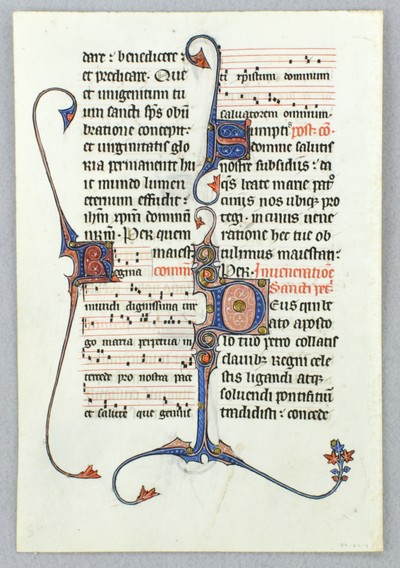 dare: benedicere:
et predicare. Que
et unigenitum tu
um sancti sp̄s obū
bratione concepit:
et virginitatis glo
ria permanente hu
ic mundo lumen
eternum effudit:
ih̄m xp̄m dominū
nr̄m. Per quem
maiest̄.
Regina com̄o
mundi dignissima vir
go maria perpetua in
tercede pro nostra pace
et salute que genuis
ti xp̄istum dominum
salvatorem omnium.
Sumptis post. cō.
domine salutis
nostre subsidiis: da
q̄s beate marie pat͛o
ciniis nos ubiq̨ pro
tegi. in cuius vene
ratione hec tue ob
tulimus maiestati:
Per. In veneratione
Sancti pet͛
Deus qui be
ato aposto
lo tuo petro collatis
clavibus regni cele
stis ligandi atq̨
solvendi pontificiū
tradidisti: concede